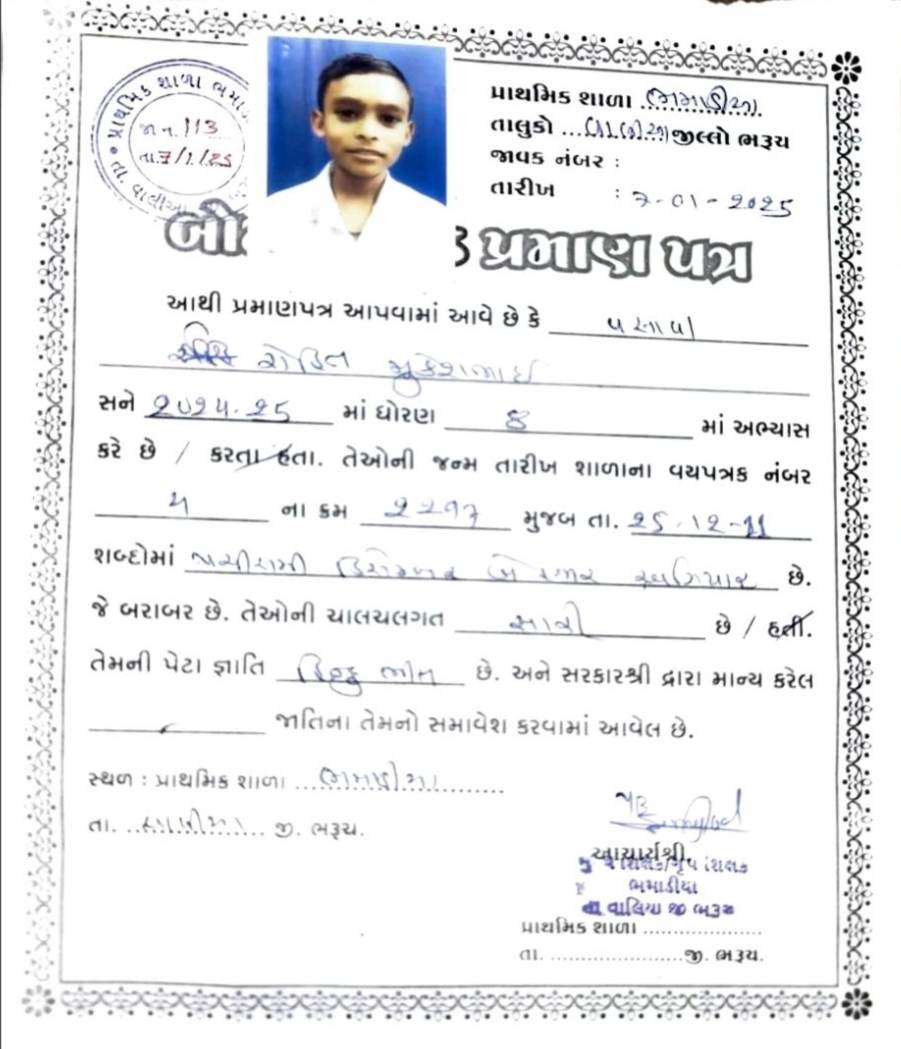 પ્રાથમિક શાળા ભમા
જા.ન. 113
તા. 7/1/25
તા. વાલીઆ
પ્રાથમિક શાળા ભમાડીયા
તાલુકો ... વાલીયા જીલ્લો ભરૂચ
જાવક નંબર :
તારીખ : ૭-૦૧-૨૦૨૫
બો ક પ્રમાણ પત્ર
આથી પ્રમાણપત્ર આપવામાં આવે છે કે વસાવા
રોહિત મુકેશભાઈ
સને ૨૦૨૪-૨૫ માં ધોરણ ૪ માં અભ્યાસ
કરે છે / કરતા હતા. તેઓની જન્મ તારીખ શાળાના વયપત્રક નંબર
૫ ના ક્રમ ૨૨૧૭ મુજબ તા. ૨૫-૧૨-૧૧
શબ્દોમાં પચીસમી ડિસેમ્બર બે હજાર અગિયાર છે.
જે બરાબર છે. તેઓની ચાલચલગત સારી છે / હતી.
તેમની પેટા જ્ઞાતિ હિન્દુ ભીલ છે. અને સરકારશ્રી દ્વારા માન્ય કરેલ
જાતિના તેમનો સમાવેશ કરવામાં આવેલ છે.
સ્થળ : પ્રાથમિક શાળા ... ભમાડીયા
તા. ... વાલીયા ... જી. ભરૂચ.
આચાર્યશ્રી,
ભમાડીયા
તા વાલિયા જી ભરૂચ
પ્રાથમિક શાળા ....................
તા. ....................... જી. ભરૂચ.